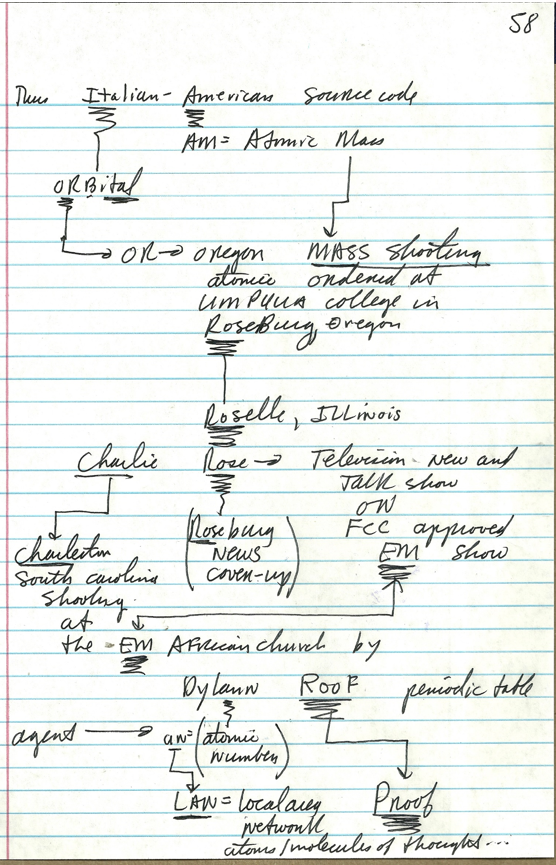 58
Thus Italian- American Source code
AM = Atomic Mass
ORBital
OR → Oregon MASS Shooting
atomic ordered at
UMPQUA college in
RoseBurg, Oregon
Roselle, ILLinois
Charlie Rose → Television New and
Talk show
on
(Roseburg FCC approved
Charleston NEWS EM show
South Carolina cover-up)
Shooting
at
the EM African church by
Dylann ROOF periodic table
agent → an = (atomic
number)
LAN = local area Proof
network
atoms/molecules of thought...